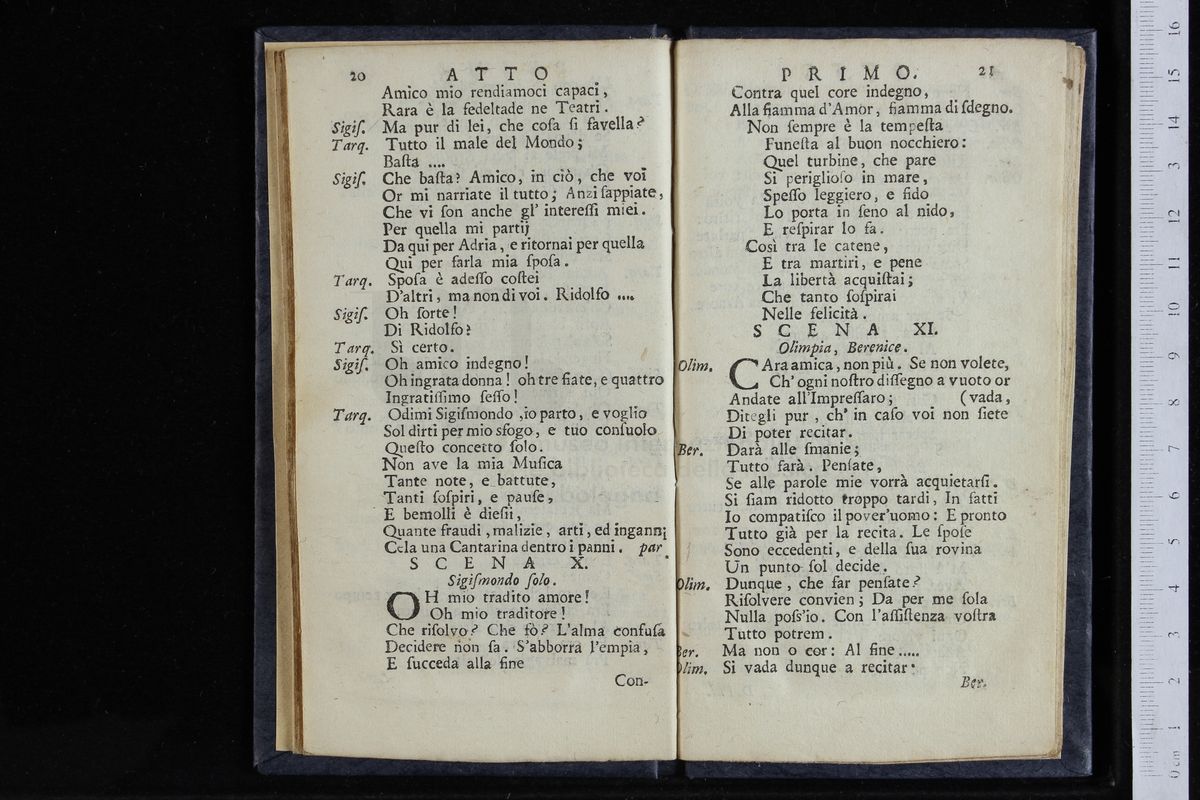 20 ATTO
Amico mio rendiamoci capaci,
Rara è la fedeltade ne Teatri.
Sigiſ. Ma pur di lei, che coſa ſi favella?
Tarq. Tutto il male del Mondo;
Baſta ....
Sigiſ. Che baſta? Amico, in ciò, che voi
Or mi narriate il tutto; Anzi ſappiate,
Che vi ſon anche gl' intereſſi miei.
Per quella mi partij
Da qui per Adria, e ritornai per quella
Qui per farla mia ſpoſa.
Tarq. Spoſa è adeſſo coſtei
D'altri, ma non di voi. Ridolfo ....
Sigiſ. Oh ſorte!
Di Ridolfo?
Tarq. Sì certo.
Sigiſ. Oh amico indegno!
Oh ingrata donna! oh tre fiate, e quattro
Ingratiſſimo ſeſſo!
Tarq. Odimi Sigiſmondo, io parto, e voglio
Sol dirti per mio sfogo, e tuo conſuolo
Queſto concetto ſolo.
Non ave la mia Muſica
Tante note, e battute,
Tanti ſoſpiri, e pauſe,
E bemolli è dieſii,
Quante fraudi, malizie, arti, ed inganni
Cela una Cantarina dentro i panni. par.
SCENA X.
Sigiſmondo ſolo.
OH mio tradito amore!
Oh mio traditore!
Che riſolvo? Che fò? L'alma confuſa
Decidere non ſa. S'abborra l'empia,
E ſucceda alla fine
Con-
PRIMO. 21
Contra quel core indegno,
Alla fiamma d'Amor, fiamma di ſdegno.
Non ſempre è la tempeſta
Funeſta al buon nocchiero:
Quel turbine, che pare
Sì periglioſo in mare,
Speſſo leggiero, e fido
Lo porta in ſeno al nido,
E reſpirar lo fa.
Così tra le catene,
E tra martiri, e pene
La libertà acquiſtai;
Che tanto ſoſpirai
Nelle felicità.
SCENA XI.
Olimpia, Berenice.
Olim. CAra amica, non più. Se non volete,
Ch' ogni noſtro diſſegno a vuoto or
Andate all'Impreſſaro; (vada,
Ditegli pur, ch' in caſo voi non ſiete
Di poter recitar.
Ber. Darà alle ſmanie;
Tutto farà. Penſate,
Se alle parole mie vorrà acquietarſi.
Si ſiam ridotto troppo tardi, In fatti
Io compatiſco il pover'uomo: E pronto
Tutto già per la recita. Le ſpeſe
Sono eccedenti, e della ſua rovina
Un punto ſol decide.
Olim. Dunque, che far penſate?
Riſolvere convien; Da per me ſola
Nulla poſs'io. Con l'aſſiſtenza voſtra
Tutto potrem.
Ber. Ma non o cor: Al fine.....
Olim. Si vada dunque a recitar:
Ber.